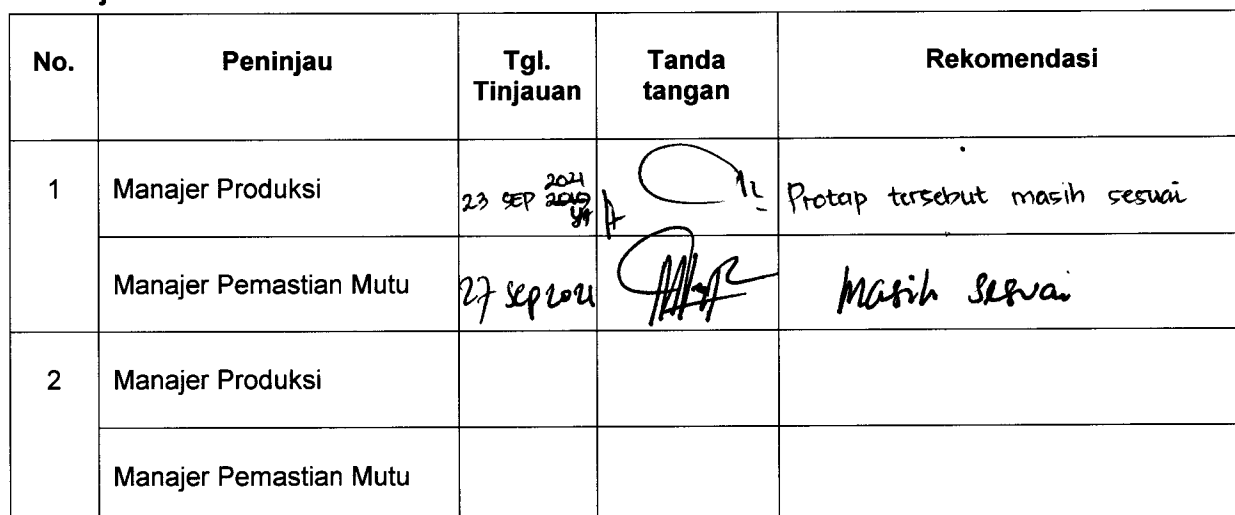 No. Peninjau Tgl. Tinjauan Tanda tangan Rekomendasi
1 Manajer Produksi 23 SEP 2021 Protap tersebut masih sesuai
Manajer Pemastian Mutu 27 Sep 2021 Masih sesuai
2 Manajer Produksi
Manajer Pemastian Mutu